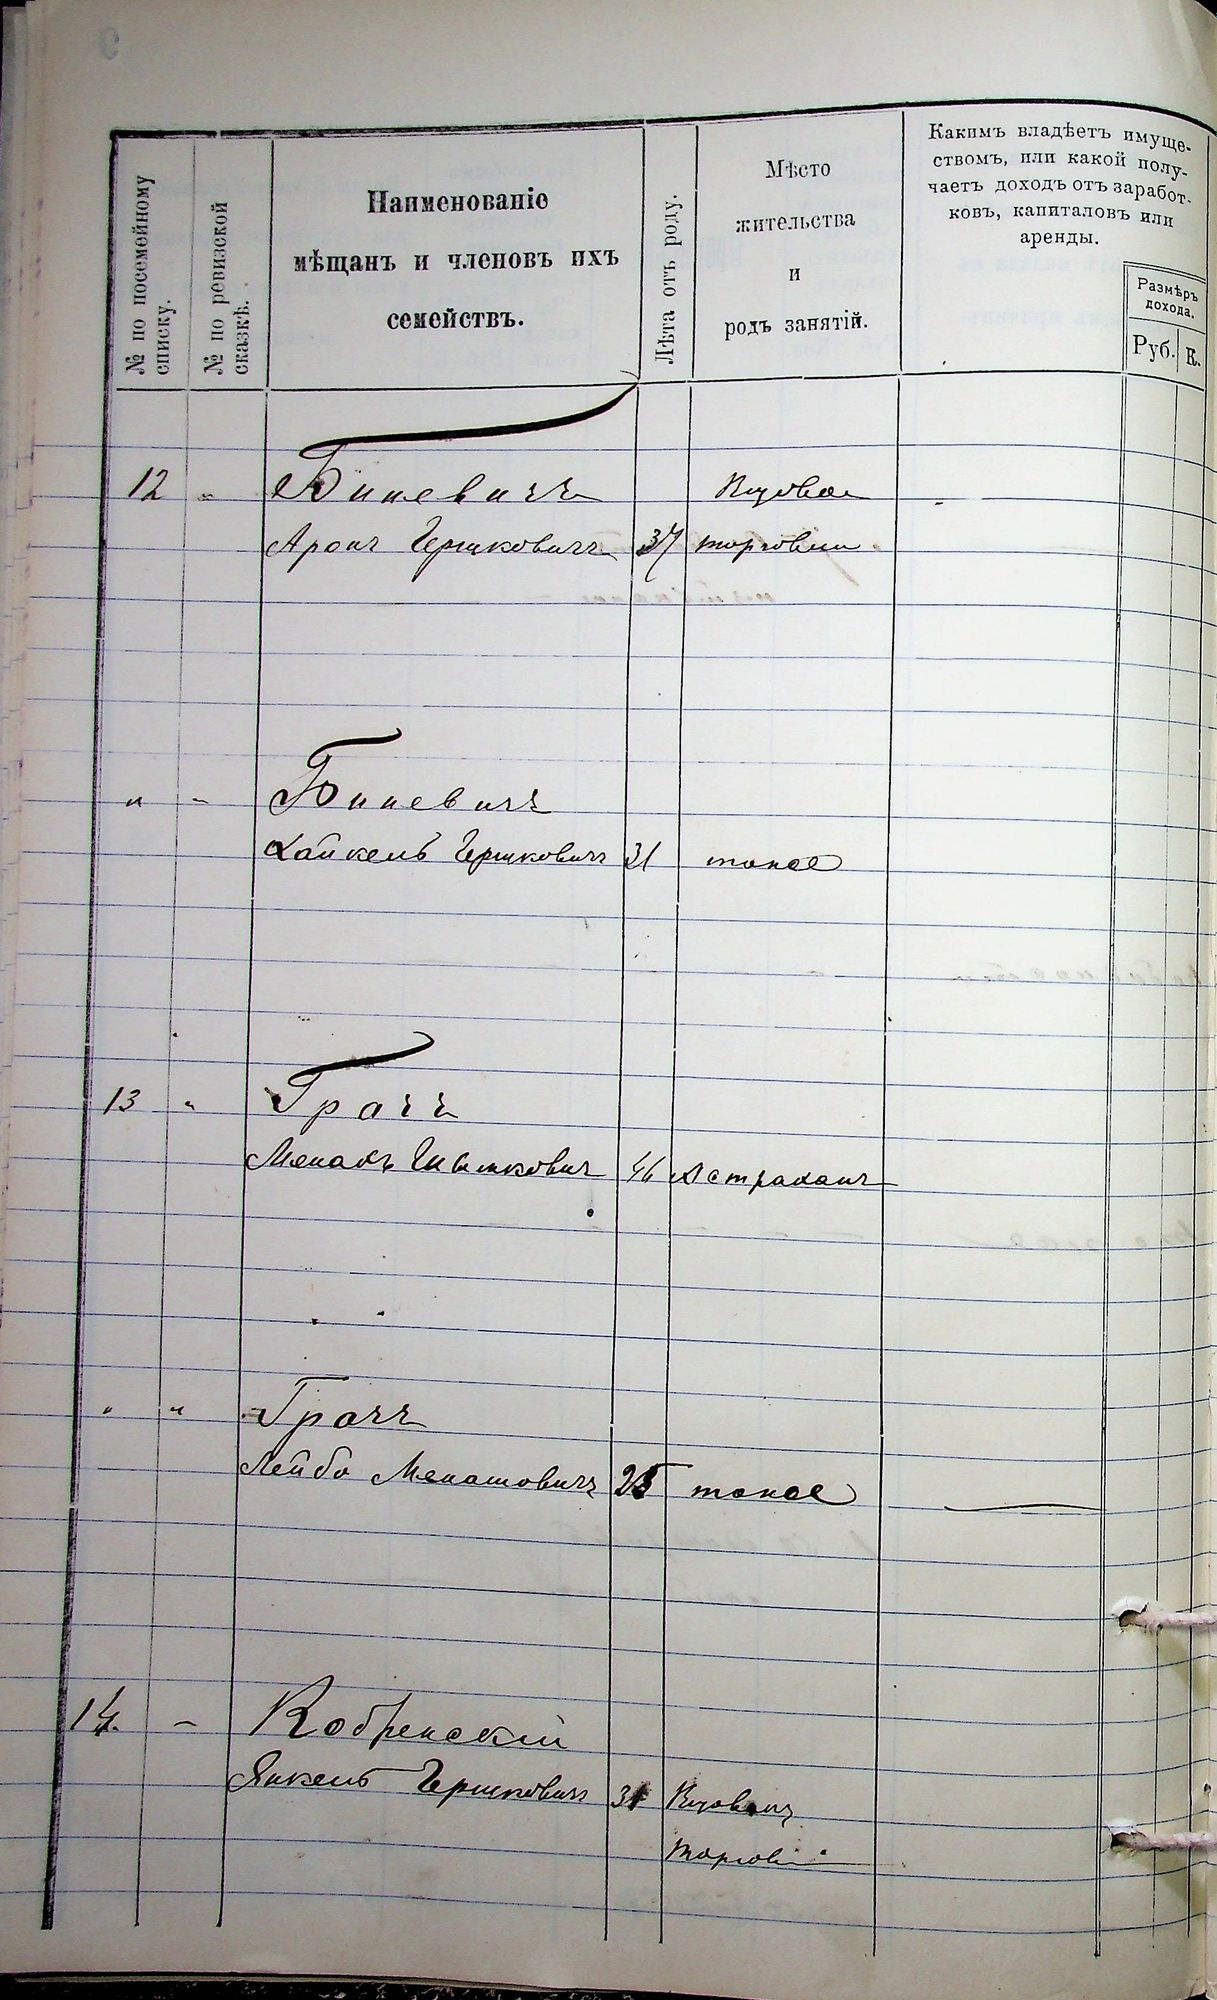 № по посемейному
списку.
№ по ревизской
сказкѣ.
Наименованіе
мѣщанъ и членовъ ихъ
семействъ.
Лѣта отъ роду.
Мѣсто
жительства
и
родъ занятій.
Какимъ владѣетъ имуще-
ствомъ, или какой полу-
чаетъ доходъ отъ заработ-
ковъ, капиталовъ или
аренды.
Размѣръ
дохода.
Руб. К.
12 " Биневичъ
Аронъ Гершковичъ 37
" " Биневичъ
Хайкель Гершковичъ 31 тоже
13 " Грачъ
46 Астрахань
" " Грачъ
Лейба Менашовичъ 25 тоже
14. - Кобренскій
Янкель Гершковичъ 31